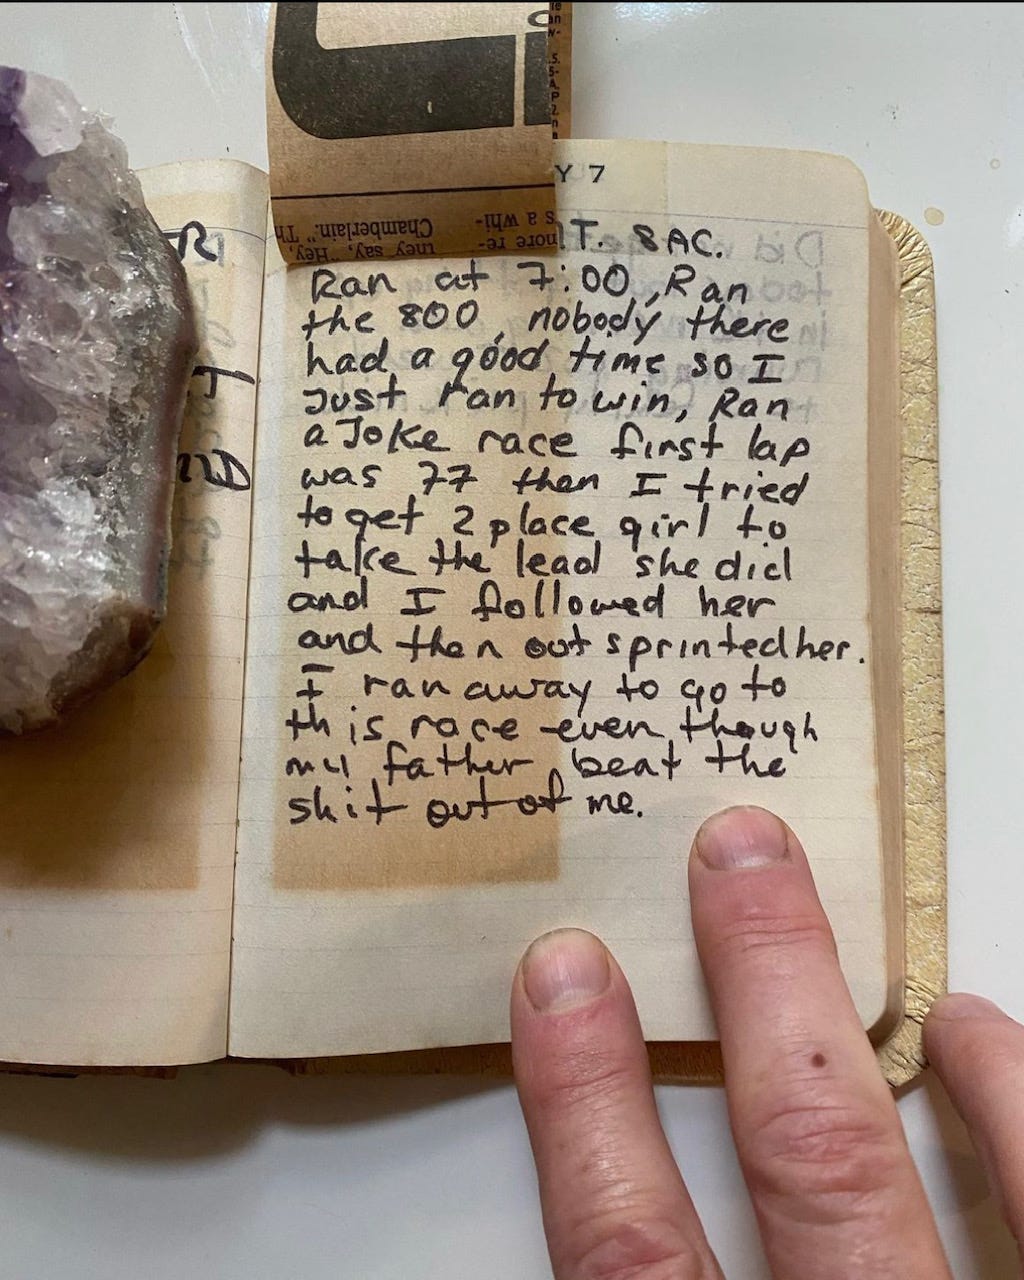 Y 7
T. SAC.
Ran at 7:00, Ran
the 800, nobody there
had a good time so I
Just ran to win, Ran
a Joke race first lap
was 77 then I tried
to get 2 place girl to
take the lead she did
and I followed her
and then out sprinted her.
I ran away to go to
this race even though
my father beat the
shit out of me.
more re-
s a whi-
they say, "Hey,
Chamberlain." Th